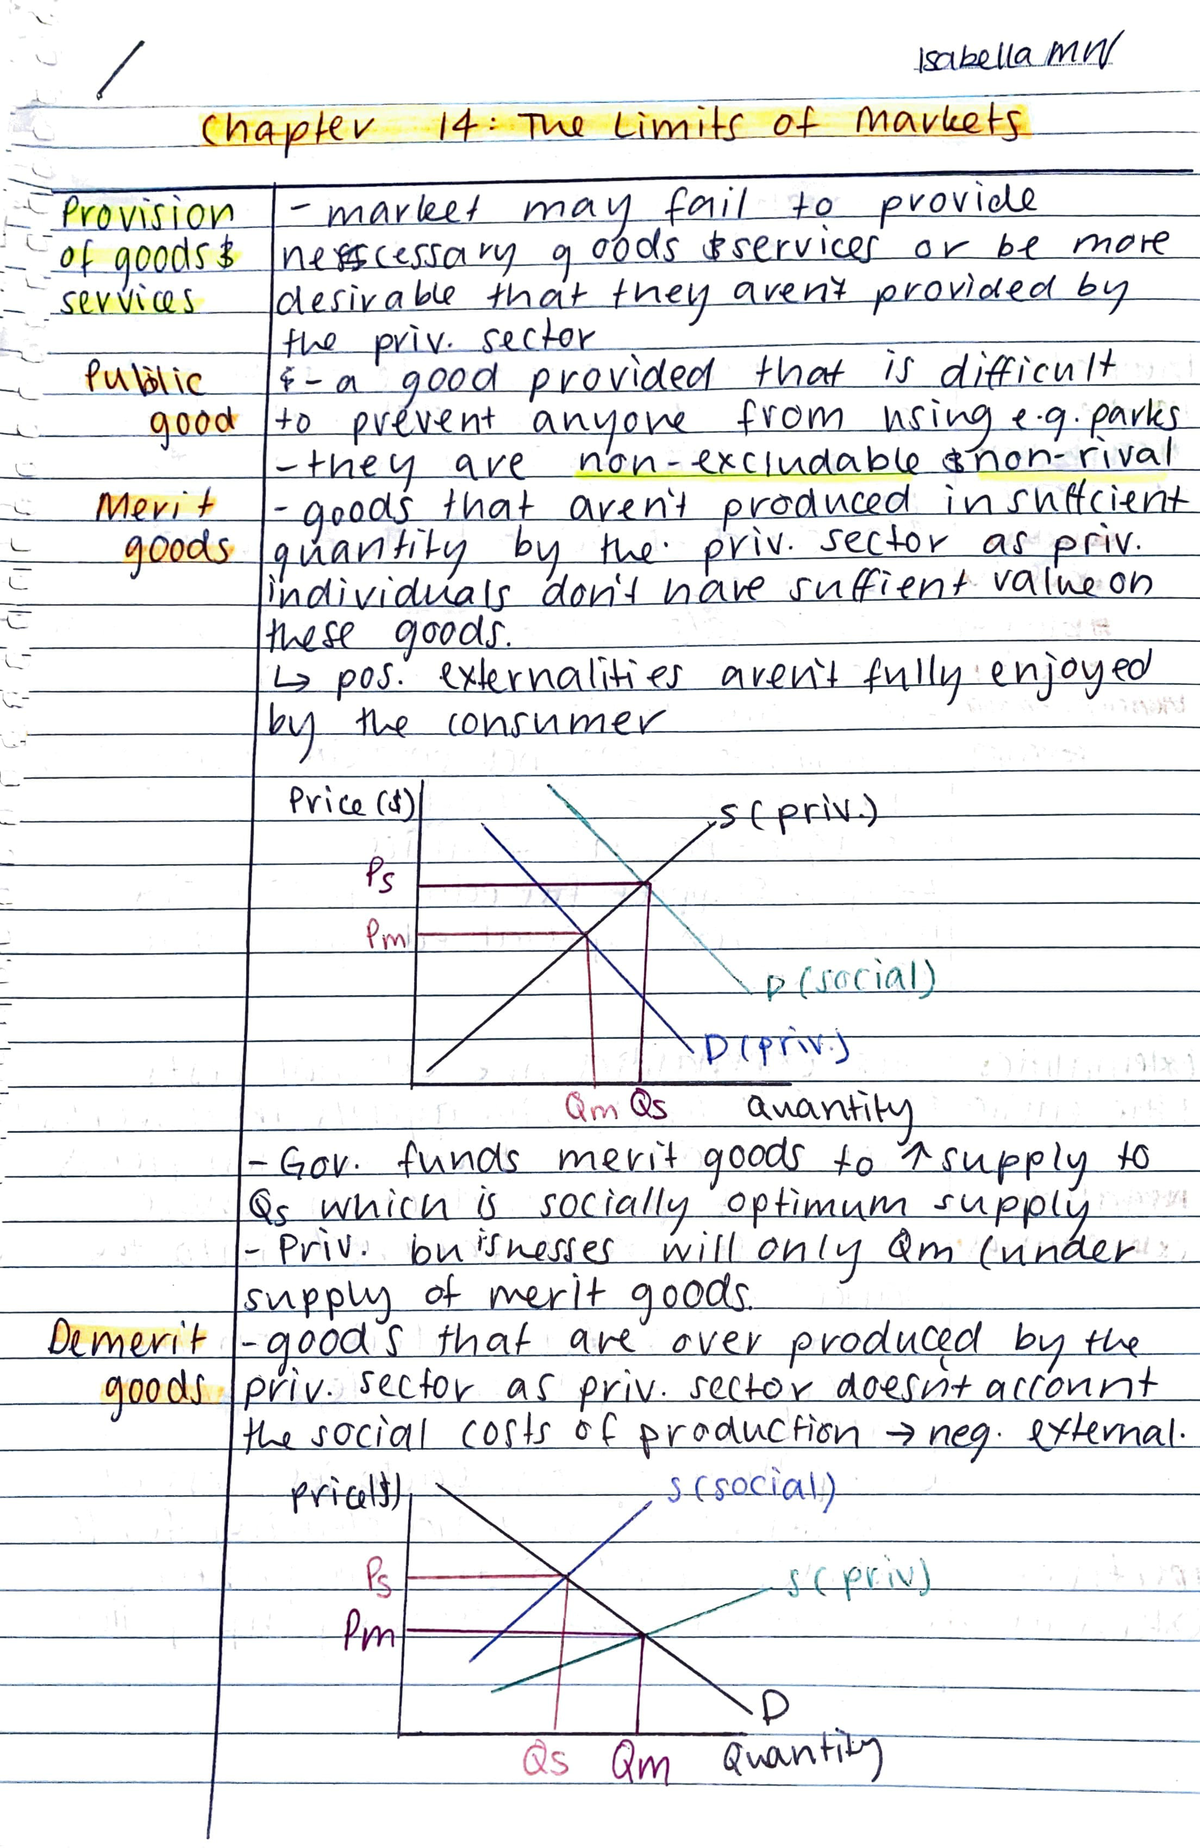 Isabella MW
Chapter 14: The Limits of Markets
Provision
of goods &
services
- market may fail to provide
nesscessary goods & services or be more
desirable that they aren't provided by
the priv. sector
Public
good
& - a good provided that is difficult
to prevent anyone from using e.g. parks
- they are non-excludable & non-rival
Merit
goods
- goods that aren't produced in suffcient
quantity by the priv. sector as priv.
individuals don't have suffient value on
these goods.
↳ pos. externalities aren't fully enjoyed
by the consumer
Price ($)
S (priv.)
Ps
Pm
D (social)
D (priv.)
Qm Qs Quantity
- Gov. funds merit goods to ↑ supply to
Qs which is socially optimum supply
- Priv. buisnesses will only Qm (under
supply of merit goods.
Demerit
goods
- goods that are over produced by the
priv. sector as priv. sector doesn't account
the social costs of production → neg. external.
Price($)
S (social)
Ps
S (priv)
Pm
D
Qs Qm Quantity